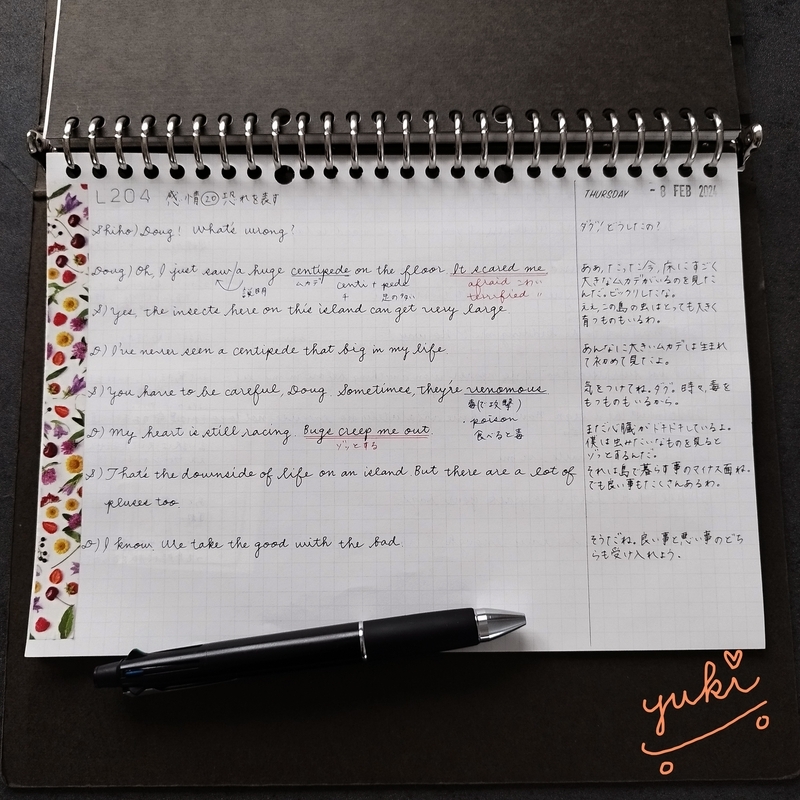 L204 感情⑳恐れを表す
THURSDAY - 8 FEB 2024
Shiho) Doug! What's wrong?
ダグ!どうしたの?
Doug) Oh, I just saw a huge centipede on the floor. It scared me
説明
ムカデ
centi + pede
足のない
afraid こわい
terrified 〃
ああ、たった今、床にすごく
大きなムカデがいるのを見た
んだ。ビックリしたな。
S) Yes, the insects here on this island can get very large
ええ、この島の虫はとっても大きく
育つものもいるわ。
D) I've never seen a centipede that big in my life.
あんなに大きいムカデは生まれ
て初めて見たよ。
S) You have to be careful, Doug. Sometimes, they're venomous
毒(で攻撃)
・poison
食べると毒
気をつけてね。ダグ。時々、毒を
もつものもいるから。
D) My heart is still racing. Bugs creep me out.
ゾッとする
まだ心臓がドキドキしているよ。
僕は虫みたいなものを見ると
ゾッとするんだ。
S) That's the downside of life on an island. But there are a lot of
pluses too.
それは島で暮らす事のマイナス面ね。
でも良い事もたくさんあるわ。
D) I know. We take the good with the bad.
そうだね。良い事と悪い事のどち
らも受け入れよう。
yuki